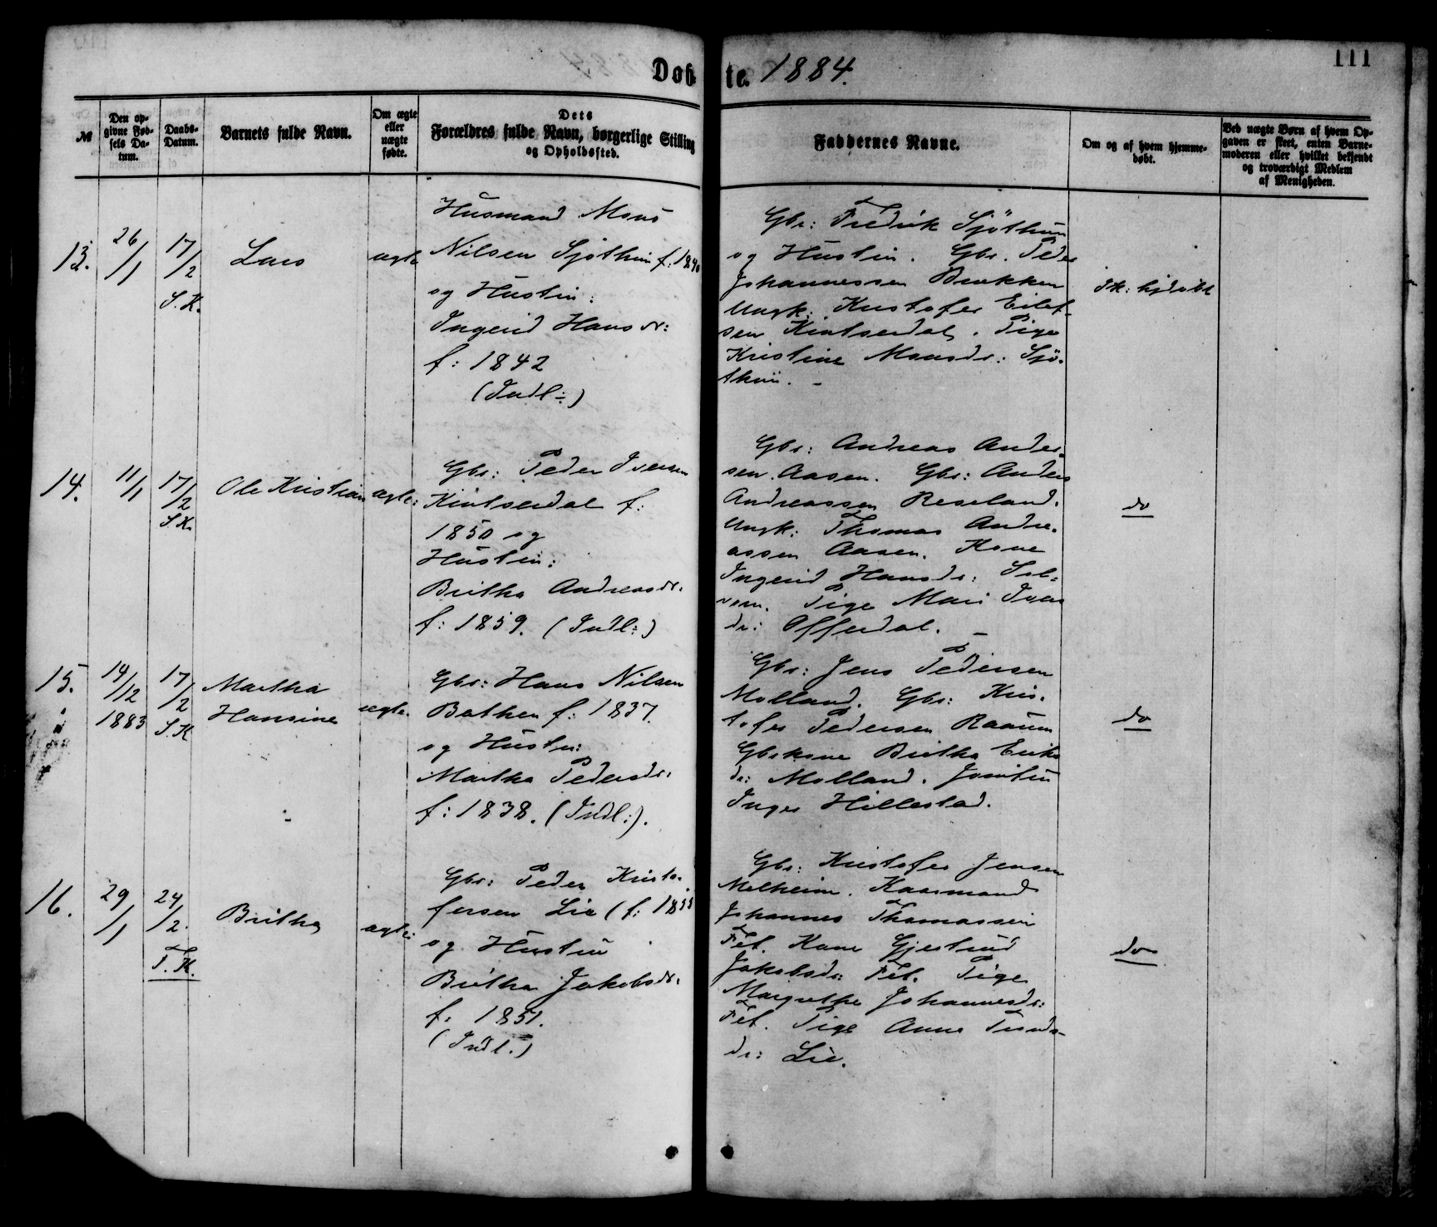 111
Døbte. 1884.
№
Den opgivne Fødsels Datum.
Daabs-Datum.
Barnets fulde Navn.
Om ægte eller uægte fødte.
Dets Forældres fulde Navn, borgerlige Stilling og Opholdssted.
Faddernes Navne.
Om og af hvem hjemmedøbt.
Ved uægte Børn af hvem Opgaven er skeet, enten Barnemoderen eller hvilket bekjendt og troværdigt Medlem af Menigheden.
13.
26/1
17/2
S.K.
Lars
ægte
Husmand Mons
Nilsen Sjøthun f: 1840
og Hustru:
Ingerid Hansdr:
f: 1842
(Indl:)
Gbr: Fredrik Sjøthun
og Hustru. Gbr. Peder
Johannessen Brækken
Ungk: Kristofer Eilef-
sen Kintserdal. Pige
Kristine Monsdr: Sjø-
thun. -
Ik: hjdøbt
14.
11/1
17/2
S.K.
Ole Kristian
ægte:
Gbr: Peder Iversen
Kintserdal f:
1850 og
Hustru:
Britha Andreasdr.
f: 1859. (Indl:)
Gbr: Andreas Ander-
sen Aasen. Gbr: Anders
Andreassen Reseland.
Ungk: Thomas Andre-
assen Aasen. Kone
Ingerid Hansdr: Sel-
Pige Mari Ivers
dr: Offerdal. -
do
15.
14/12
1883
17/2
S.K
Martha
Hansine
ægte.
Gbr: Hans Nilsen
Bothen f: 1837.
og Hustru:
Martha Pedersdr:
f: 1838. (Indl:).
Gbr: Jens Pedersen
Molland. Gbr: Kris-
tofer Pedersen Raaum
Gbrkone Britha Eriks
dr: Molland. Jomfru
Inger Hillestad.
do
16.
29/1
24/2.
F.K.
Britha
ægte:
Gbr: Peder Kristo-
fersen Lie (f: 1855
og Hustru
Britha Jakobsdr.
f: 1851.
(Indl.)
Gbr: Kristofer Jensen
Melheim. Kaarmand
Johannes Thomassen
Fet. Kone Gjertrud
Jakobsdr: Fet. Pige
Margrethe Johannesdr:
Fet. Pige Anna
dr: Lie.
do